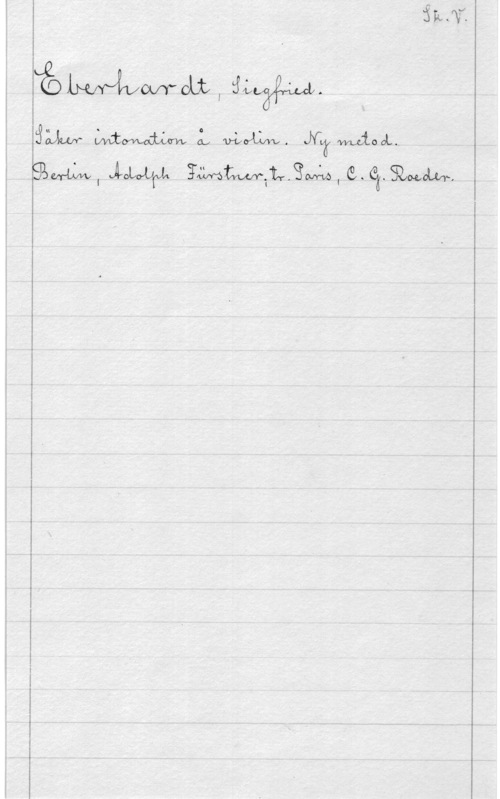 Sk. V.
Eberhardt, Siegfried.
Säker intonation å violin. Ny metod.
Berlin, Adolph Fürstner; tr. Paris, C. G. Roeder.